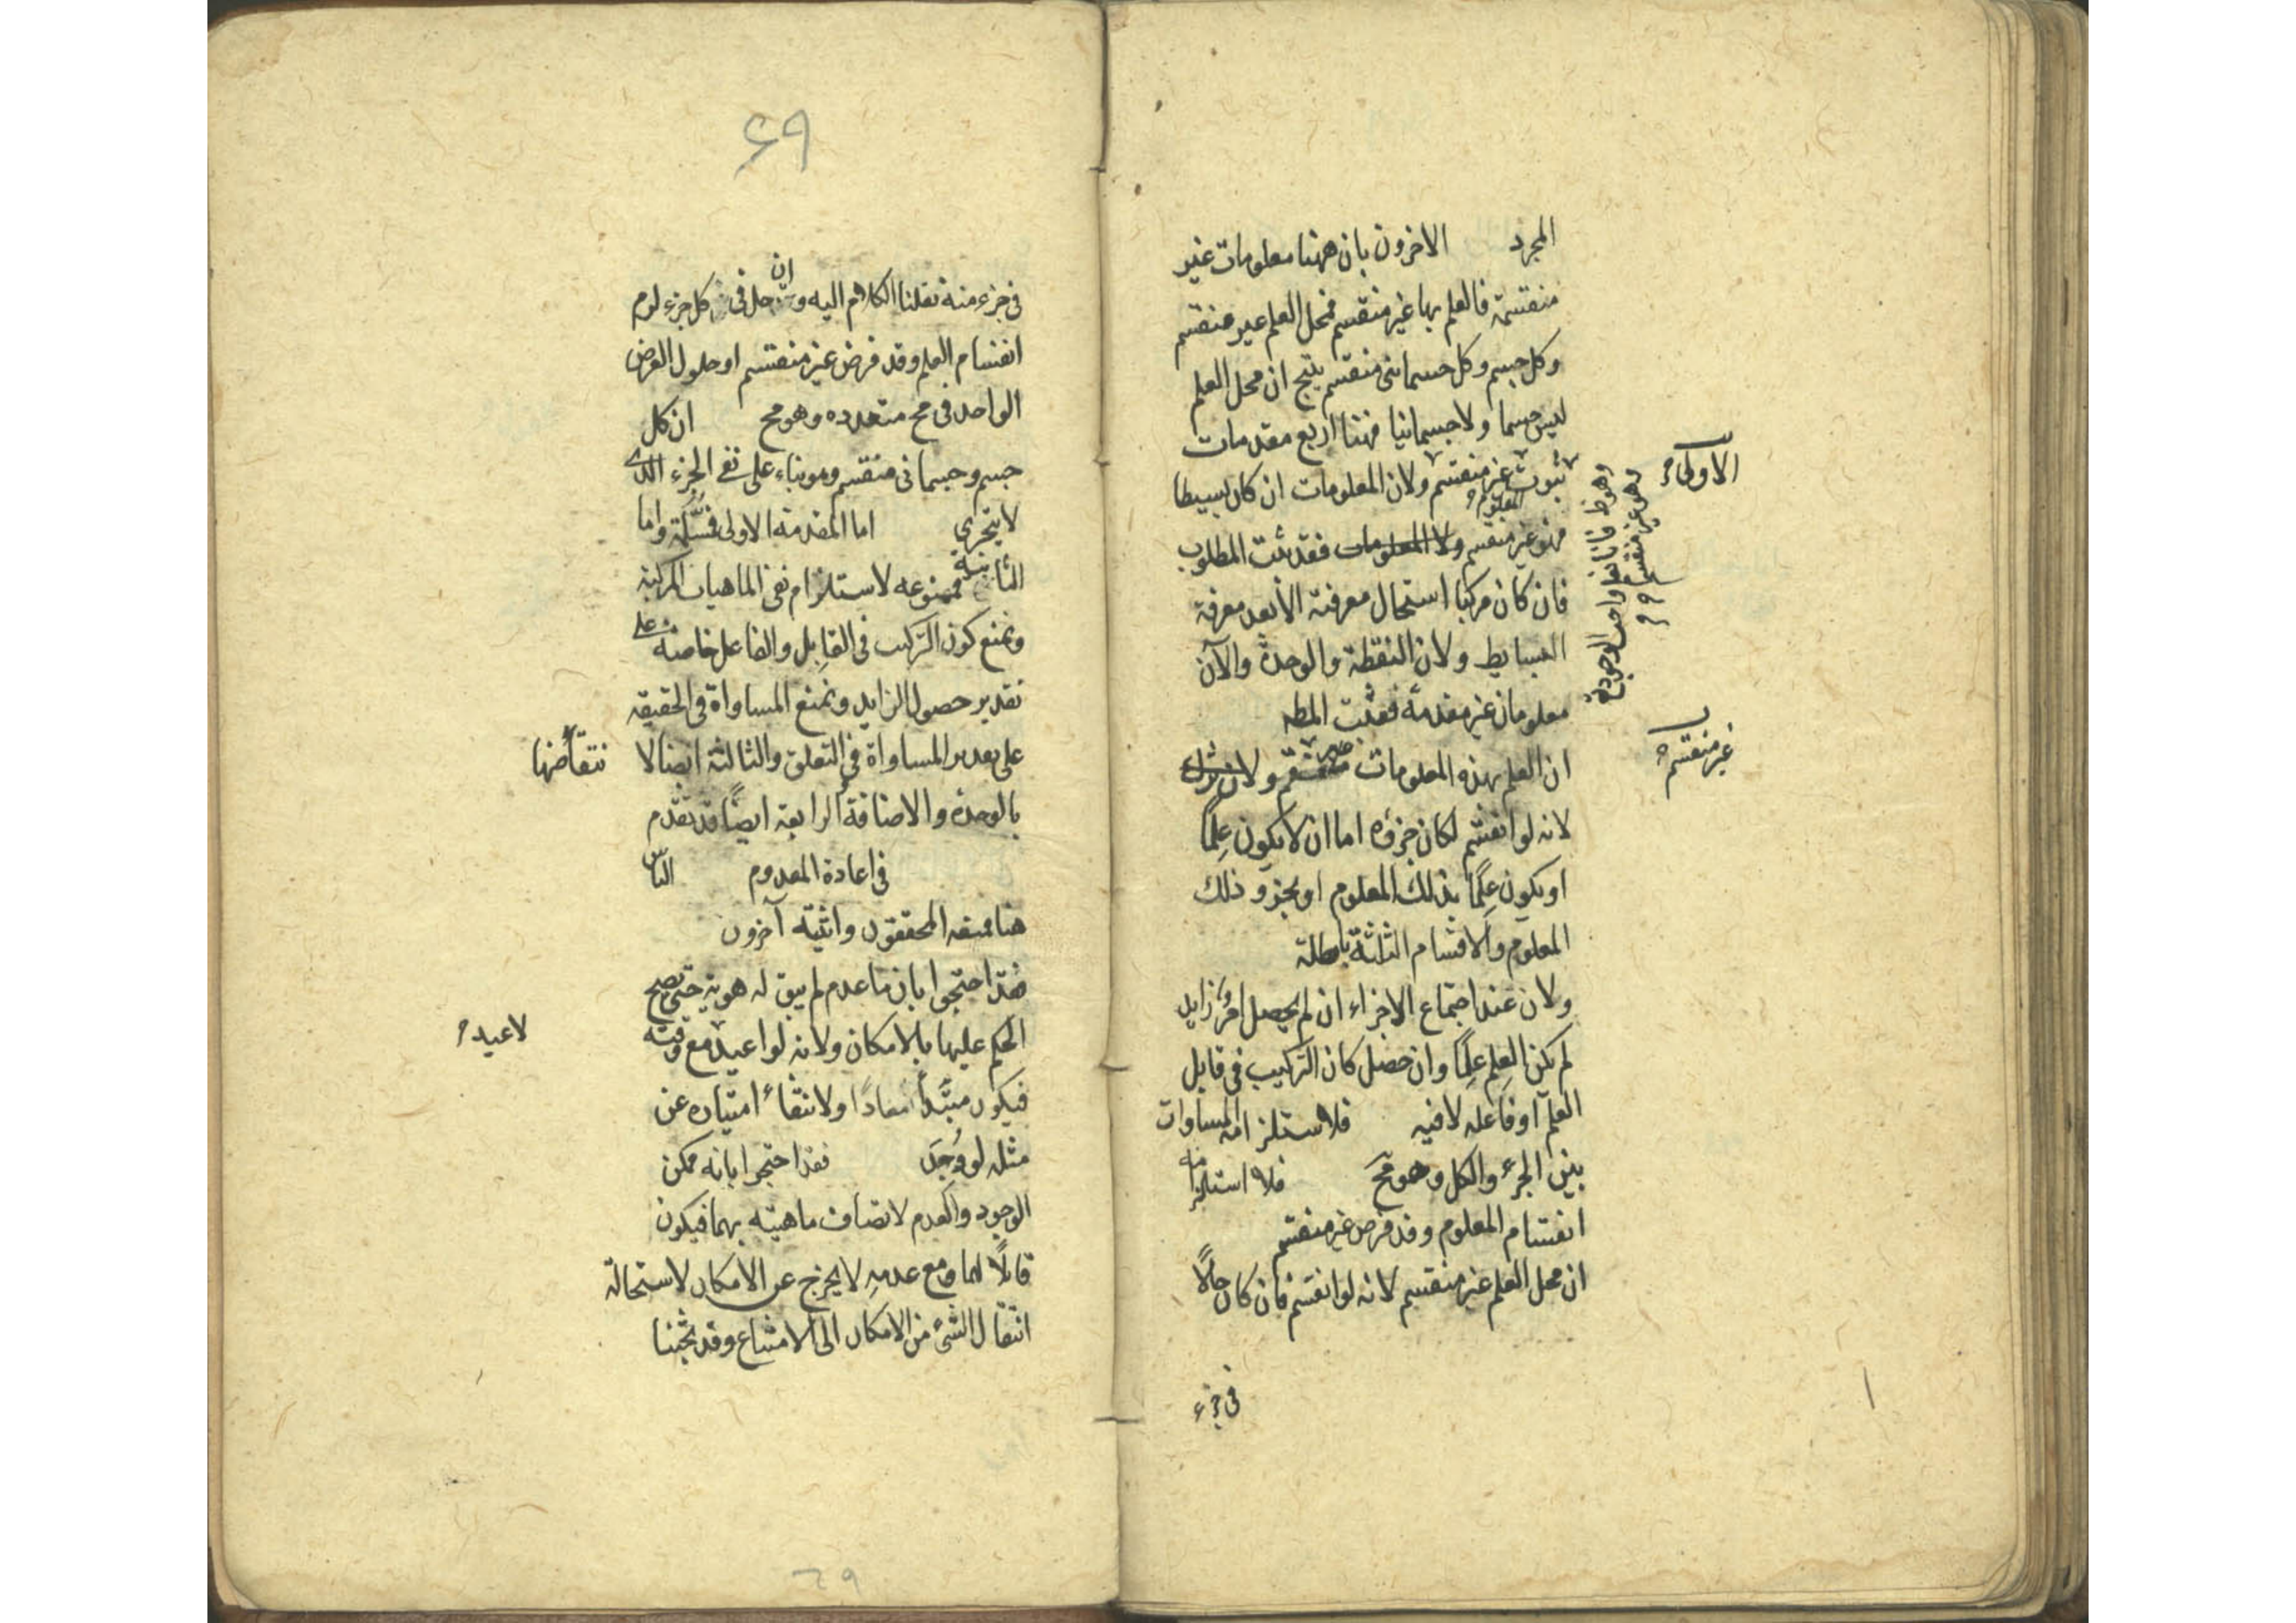 المجرد الاخرون بان ههنا معلومات غير
منقسمة فالعلم بها غير منقسم فمحل العلم غير منقسم
وكل جسم وكل جسمانى منقسم ينتج ان محل العلم
ليس جسما ولا جسمانيا فههنا اربع مقدمات
الاولى
ثبوت غير منقسم ولان المعلومات ان كان بسيطا
المعلوم
وهو غير منقسم
فهو غير منقسم ولا المعلومات فقد ثبت المطلوب
فان كان مركبا استحال معرفته الا بعد معرفة
البسايط ولان النقطة والوحدة والآن
معلومان غير مقدمة فثبت المطه
غير منقسم
ان العلم بهذه المعلومات غير منقسم ولان
لانه لو انقسم لكان جزؤه اما ان لا يكون علما
او يكون علما بذلك المعلوم او بجزو ذلك
المعلوم والاقسام الثلثة باطلة
ولان عند اجتماع الاجزاء ان لم يحصل امر زايد
لم يكن العلم علما وان حصل كان التركيب فى قابل
العلم او فاعله لا فيه فلاستلزامه المساوات
بين الجزء والكل وهو مح فلا استلزامه
انقسام المعلوم وقد فرض غير منقسم
ان محل العلم غير منقسم لانه لو انقسم فان كان حالا
فى جزء
٦٩
فى جزء منه نقلنا الكلام اليه وان حل فى كل جزء لزم
انقسام العلم وقد فرض غير منقسم او حلول العرض
الواحد فى مح متعدده وهو مح ان كل
جسم وجسمانى منقسم وهو بناء على نفى الجزء الذى
لا يتجزى اما المقدمة الاولى فمسلمة واما
الثانية فممنوعه لاستلزام نفى الماهيات المركبة
ونمنع كون التركيب فى القابل والفاعل خاصة على
تقدير حصول الزايد ونمنع المساواة فى الحقيقه
على تقدير المساواة فى التعلق والثالثة ايضا لا نتقاضها
بالوحدة والاضافة الرابعة ايضًا قد تقدم
فى اعادة المعدوم الناس
هنا فمنعه المحققون واثبته آخرون
احتجوا بان ما عدم لم يبق له هوية حتى يصح
الحكم عليها بالامكان ولانه لو اعيد مع وقته
لاعيد
فيكون مبتدأ معادًا ولانتفاء امتيازه عن
مثله لو وجد فقد احتجوا بانه ممكن
الوجود والعدم لاتصاف ماهيته بهما فيكون
قابلًا لهما ومع عدمه لا يخرج عن الامكان لاستحالة
انتقال الشئ من الامكان الى الامتناع وقد بحثنا
٦٩